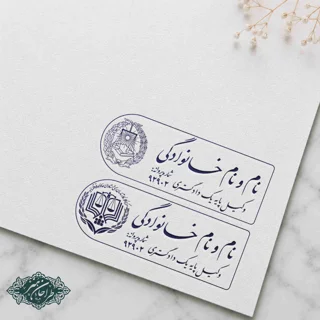 نام و نام خانوادگی
شماره پروانه:
وکیل پایه یک دادگستری ۹۲۹۰۲
نام و نام خانوادگی
شماره پروانه:
وکیل پایه یک دادگستری ۹۲۹۰۲